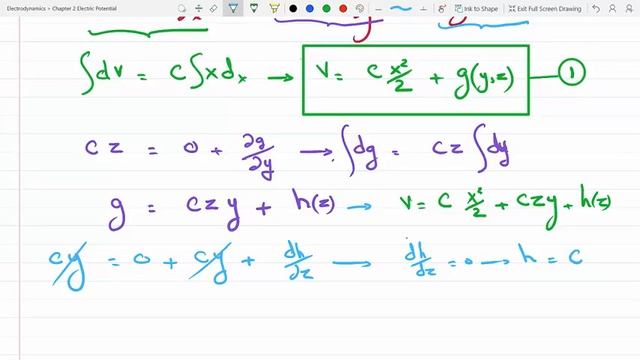 Electrodynamics > Chapter 2 Electric Potential
Ink to Shape
Exit Full Screen Drawing
∫dv = c∫xdx → V = c x²/2 + g(y,z) ①
cz = 0 + ∂g/∂y → ∫dg = cz∫dy
g = czy + h(z) → V = c x²/2 + czy + h(z)
cy = 0 + cy + dh/dz → dh/dz = 0 → h = c